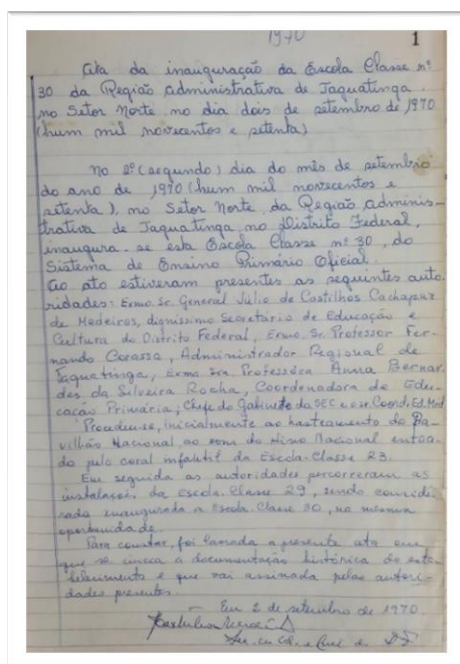 1970
1
Ata da inauguração da Escola Classe nº
30 da Região Administrativa de Taguatinga
no Setor Norte no dia dois de setembro de 1970
(hum mil novecentos e setenta)
No 2º (segundo) dia do mês de setembro
do ano de 1970 (hum mil novecentos e
setenta), no Setor Norte da Região adminis-
trativa de Taguatinga no Distrito Federal,
inaugura-se esta Escola Classe nº 30, do
Sistema de Ensino Primário Oficial.
Ao ato estiveram presentes as seguintes auto-
ridades: Exmo. Sr. General Julio de Castilhos Cachapuz
de Medeiros, digníssimo Secretário de Educação e
Cultura do Distrito Federal, Exmo. Sr. Professor Fer-
nando Corassa, Administrador Regional de
Taguatinga, Exma. Sra. Professora Anna Bernar-
des da Silveira Rocha, Coordenadora de Edu-
cação Primária; Chefe do Gabinete da SEC e o sr. Coord. Ed. Med
Procedeu-se, inicialmente ao hasteamento do Pa-
vilhão Nacional ao som do Hino Nacional entoa-
do pelo coral infantil da Escola-Classe 23.
Em seguida as autoridades percorreram as
instalações da Escola-Classe 29, sendo conside-
rada inaugurada a Escola-Classe 30, na mesma
oportunidade.
Para constar, foi lavrada a presente ata em
que se inicia a documentação histórica do esta-
belecimento e que vai assinada pelas autori-
dades presentes.
Em 2 de setembro de 1970.